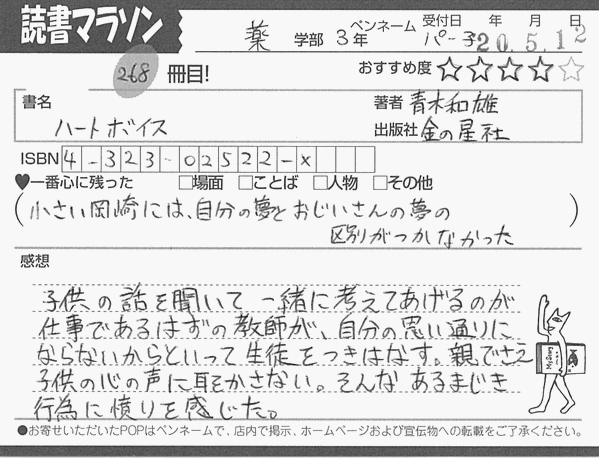 読書マラソン
薬 学部 3年 ペンネーム パー子 受付日 年 月 日 20.5.12
268 冊目!
おすすめ度 ☆☆☆☆☆
書名 ハートボイス
著者 青木和雄
出版社 金の星社
ISBN 4-323-02522-x
♥一番心に残った □場面 □ことば □人物 □その他
(小さい岡崎には、自分の夢とおじいさんの夢の
区別がつかなかった)
感想
子供の話を聞いて一緒に考えてあげるのが
仕事であるはずの教師が、自分の思い通りに
ならないからといって生徒をつきはなす。親でさえ
子供の心の声に耳をかさない。そんなあるまじき
行為に憤りを感じた。
●お寄せいただいたPOPはペンネームで、店内で掲示、ホームページおよび宣伝物への転載をご了承ください。